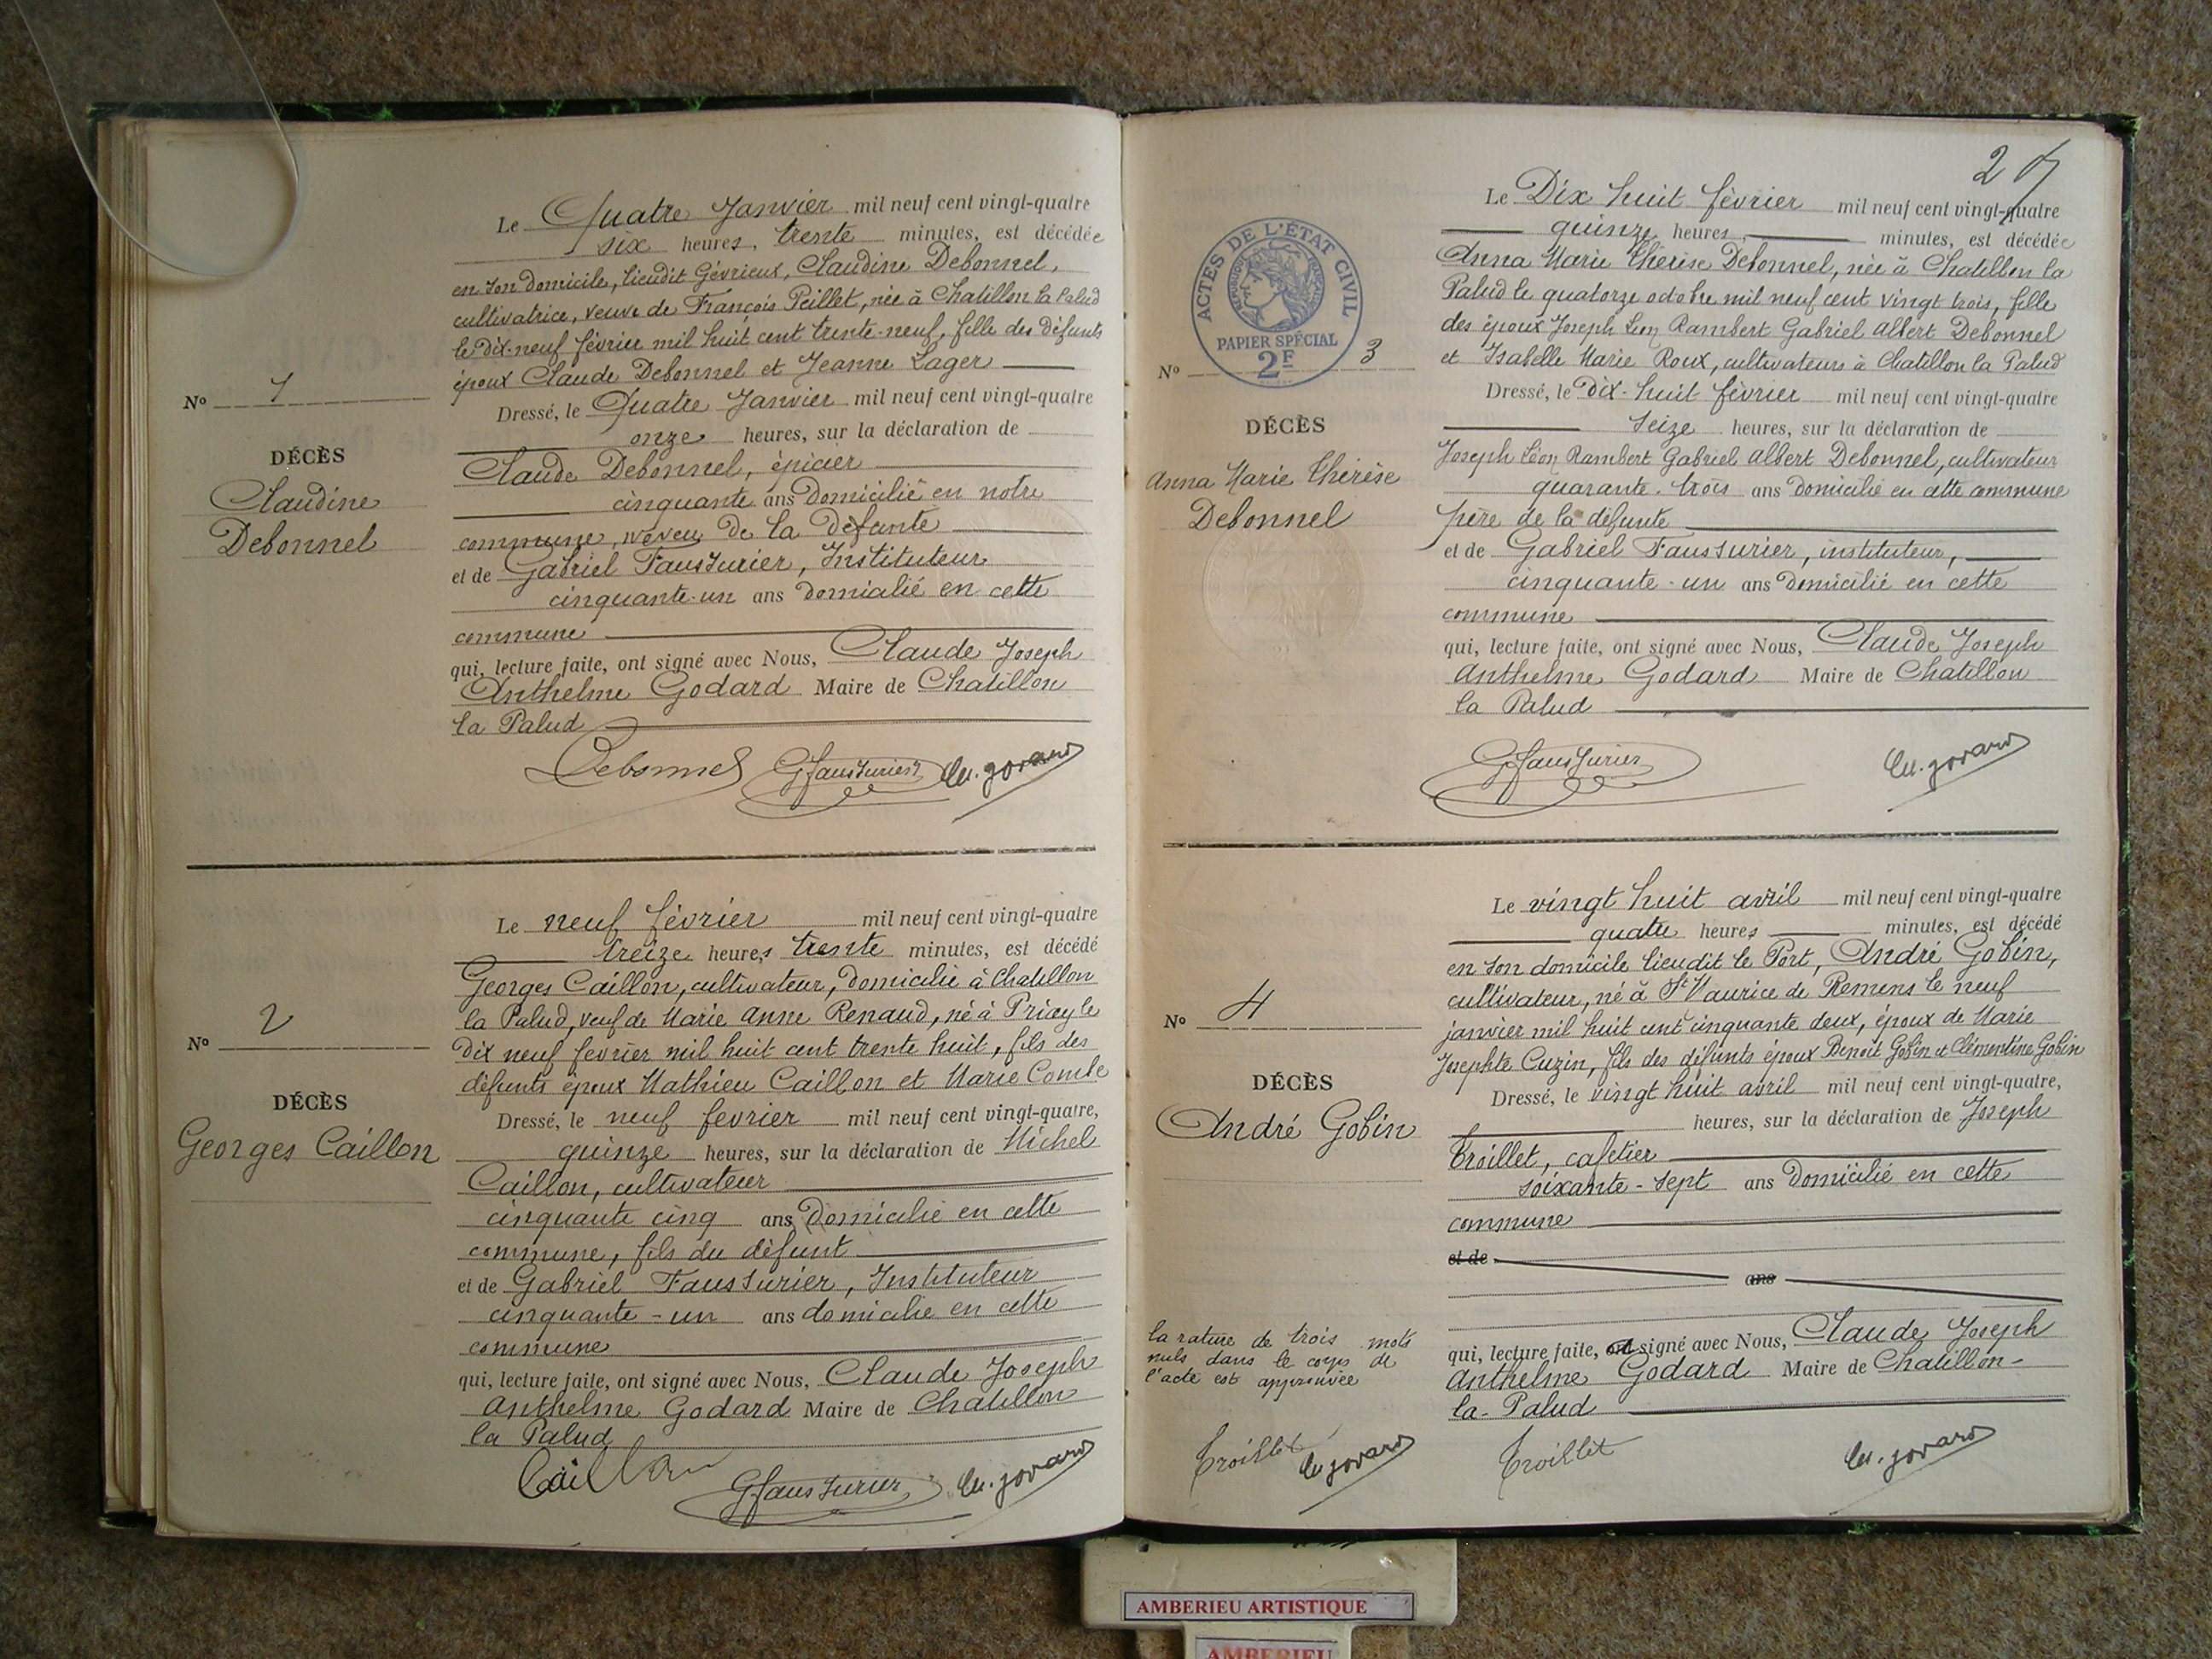 Le Quatre Janvier mil neuf cent vingt-quatre
six heures, trente minutes, est décédée
en son domicile, lieudit Gévrieux, Claudine Debonnel,
cultivatrice, veuve de François Peillet, née à Chatillon la Palud
le dix-neuf février mil huit cent trente-neuf, fille des défunts
époux Claude Debonnel et Jeanne Lager
Nº 1
Dressé, le Quatre Janvier mil neuf cent vingt-quatre
onze heures, sur la déclaration de
DÉCÈS
Claudine
Debonnel
Claude Debonnel, épicier
cinquante ans Domicilié en notre
commune, neveu de la défunte
et de Gabriel Faussurier, Instituteur
cinquante-un ans Domicilié en cette
commune
qui, lecture faite, ont signé avec Nous, Claude Joseph
Anthelme Godard Maire de Chatillon
la Palud
Debonnel GFaussurier
Le neuf février mil neuf cent vingt-quatre
treize heures trente minutes, est décédé
Georges Caillon, cultivateur, domicilié à Chatillon
la Palud, veuf de Marie Anne Renaud, né à Priay le
Dix neuf février mil huit cent trente huit, fils des
défunts époux Mathieu Caillon et Marie Combe
Nº 2
DÉCÈS
Georges Caillon
Dressé, le neuf fevrier mil neuf cent vingt-quatre,
quinze heures, sur la déclaration de Michel
Caillon, cultivateur
cinquante cinq ans Domicilié en cette
commune, fils du défunt
et de Gabriel Faussurier, Instituteur
cinquante-un ans domicilié en cette
commune
qui, lecture faite, ont signé avec Nous, Claude Joseph
Anthelme Godard Maire de Chatillon
la Palud
Caillon GFaussurier
2
Le Dix huit février mil neuf cent vingt-quatre
quinze heures, minutes, est décédée
Anna Marie Thérèse Debonnel, née à Chatillon la
Palud le quatorze octobre mil neuf cent vingt trois, fille
des époux Joseph Léon Rambert Gabriel Albert Debonnel
et Isabelle Marie Roux, cultivateurs à Chatillon la Palud
ACTES DE L'ÉTAT CIVIL
RÉPUBLIQUE FRANÇAISE
PAPIER SPÉCIAL
2F
Nº 3
DÉCÈS
Anna Marie Thérèse
Debonnel
Dressé, le Dix-huit février mil neuf cent vingt-quatre
Seize heures, sur la déclaration de
Joseph Léon Rambert Gabriel Albert Debonnel, cultivateur
quarante-trois ans domicilié en cette commune
père de la défunte
et de Gabriel Faussurier, instituteur,
cinquante-un ans Domicilié en cette
commune
qui, lecture faite, ont signé avec Nous, Claude Joseph
Anthelme Godard Maire de Chatillon
la Palud
GFaussurier
Le vingt huit avril mil neuf cent vingt-quatre
quatre heures minutes, est décédé
en son domicile lieudit le Port, André Gobin,
cultivateur, né à St Maurice de Remens le neuf
janvier mil huit cent cinquante deux, époux de Marie
Josephte Cuzin, fils des défunts époux Benoit Gobin et Clémentine Gobin
Nº 4
DÉCÈS
André Gobin
Dressé, le vingt huit avril mil neuf cent vingt-quatre,
heures, sur la déclaration de Joseph
Troillet, cafetier
soixante-sept ans Domicilié en cette
commune
et de
ans
qui, lecture faite, ont signé avec Nous, Claude Joseph
Anthelme Godard Maire de Chatillon-
la-Palud
la rature de trois mots
nuls dans le corps de
l'acte est approuvée
Troillet
Troillet
AMBERIEU ARTISTIQUE
AMBERIEU